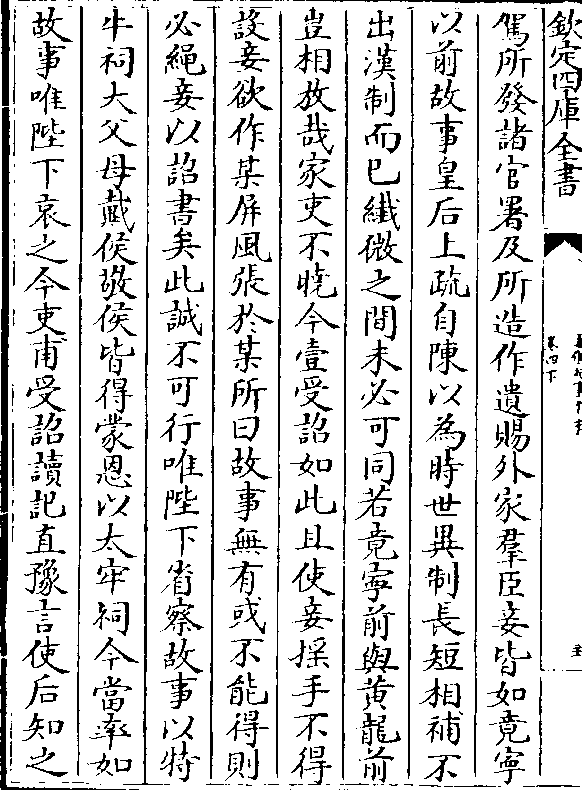 欽定四庫全書
駕所發諸官署及所造作遺賜外家羣臣妾皆如竟寧
以前故事皇后上疏自陳以為時世異制長短相補不
出漢制而已纎微之間未必可同若竟寧前與黃龍前
豈相放哉家吏不曉今壹受詔如此且使妾揺手不得
設妾欲作某屏風張於某所曰故事無有或不能得則
必繩妾以詔書矣此誠不可行唯陛下省察故事以特
牛祠大父母戴侯敬侯皆得蒙恩以太牢祠今當率如
故事唯陛下哀之今吏甫受詔讀記直豫言使后知之